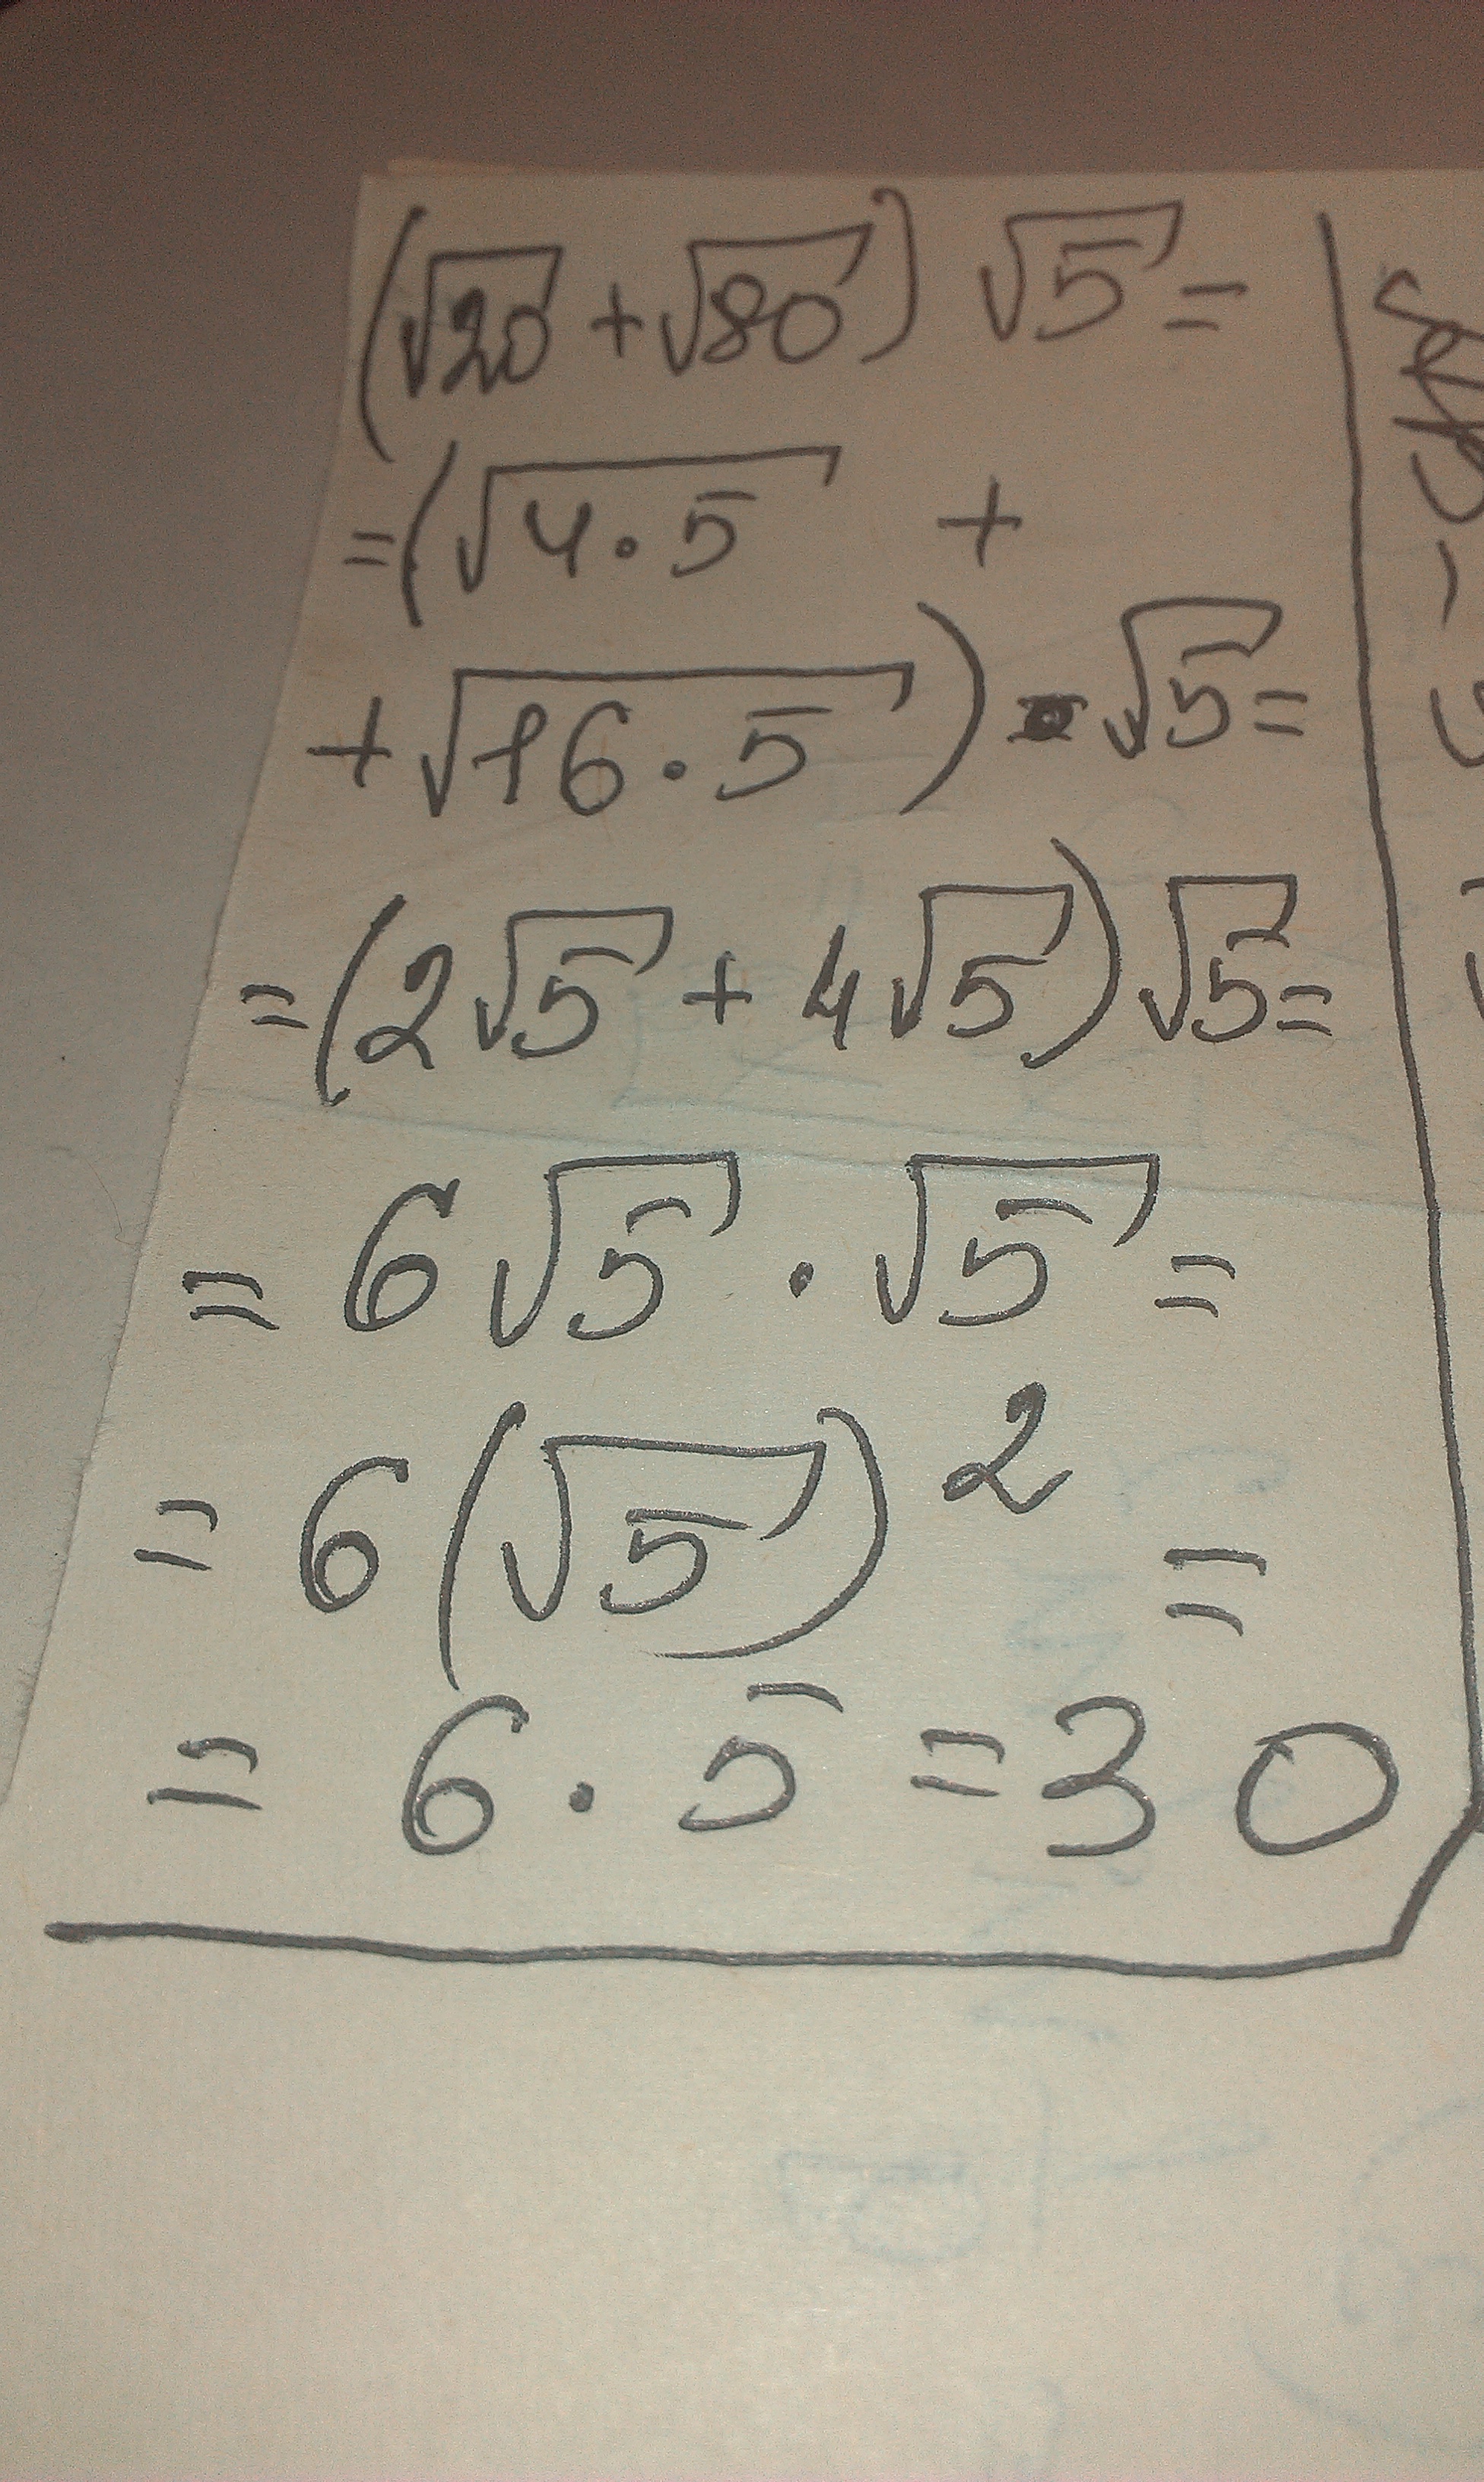 (√20 + √80) √5 =
= (√4·5 +
+ √16·5) · √5 =
= (2√5 + 4√5) √5 =
= 6√5 · √5 =
= 6(√5)² =
= 6 · 5 = 30